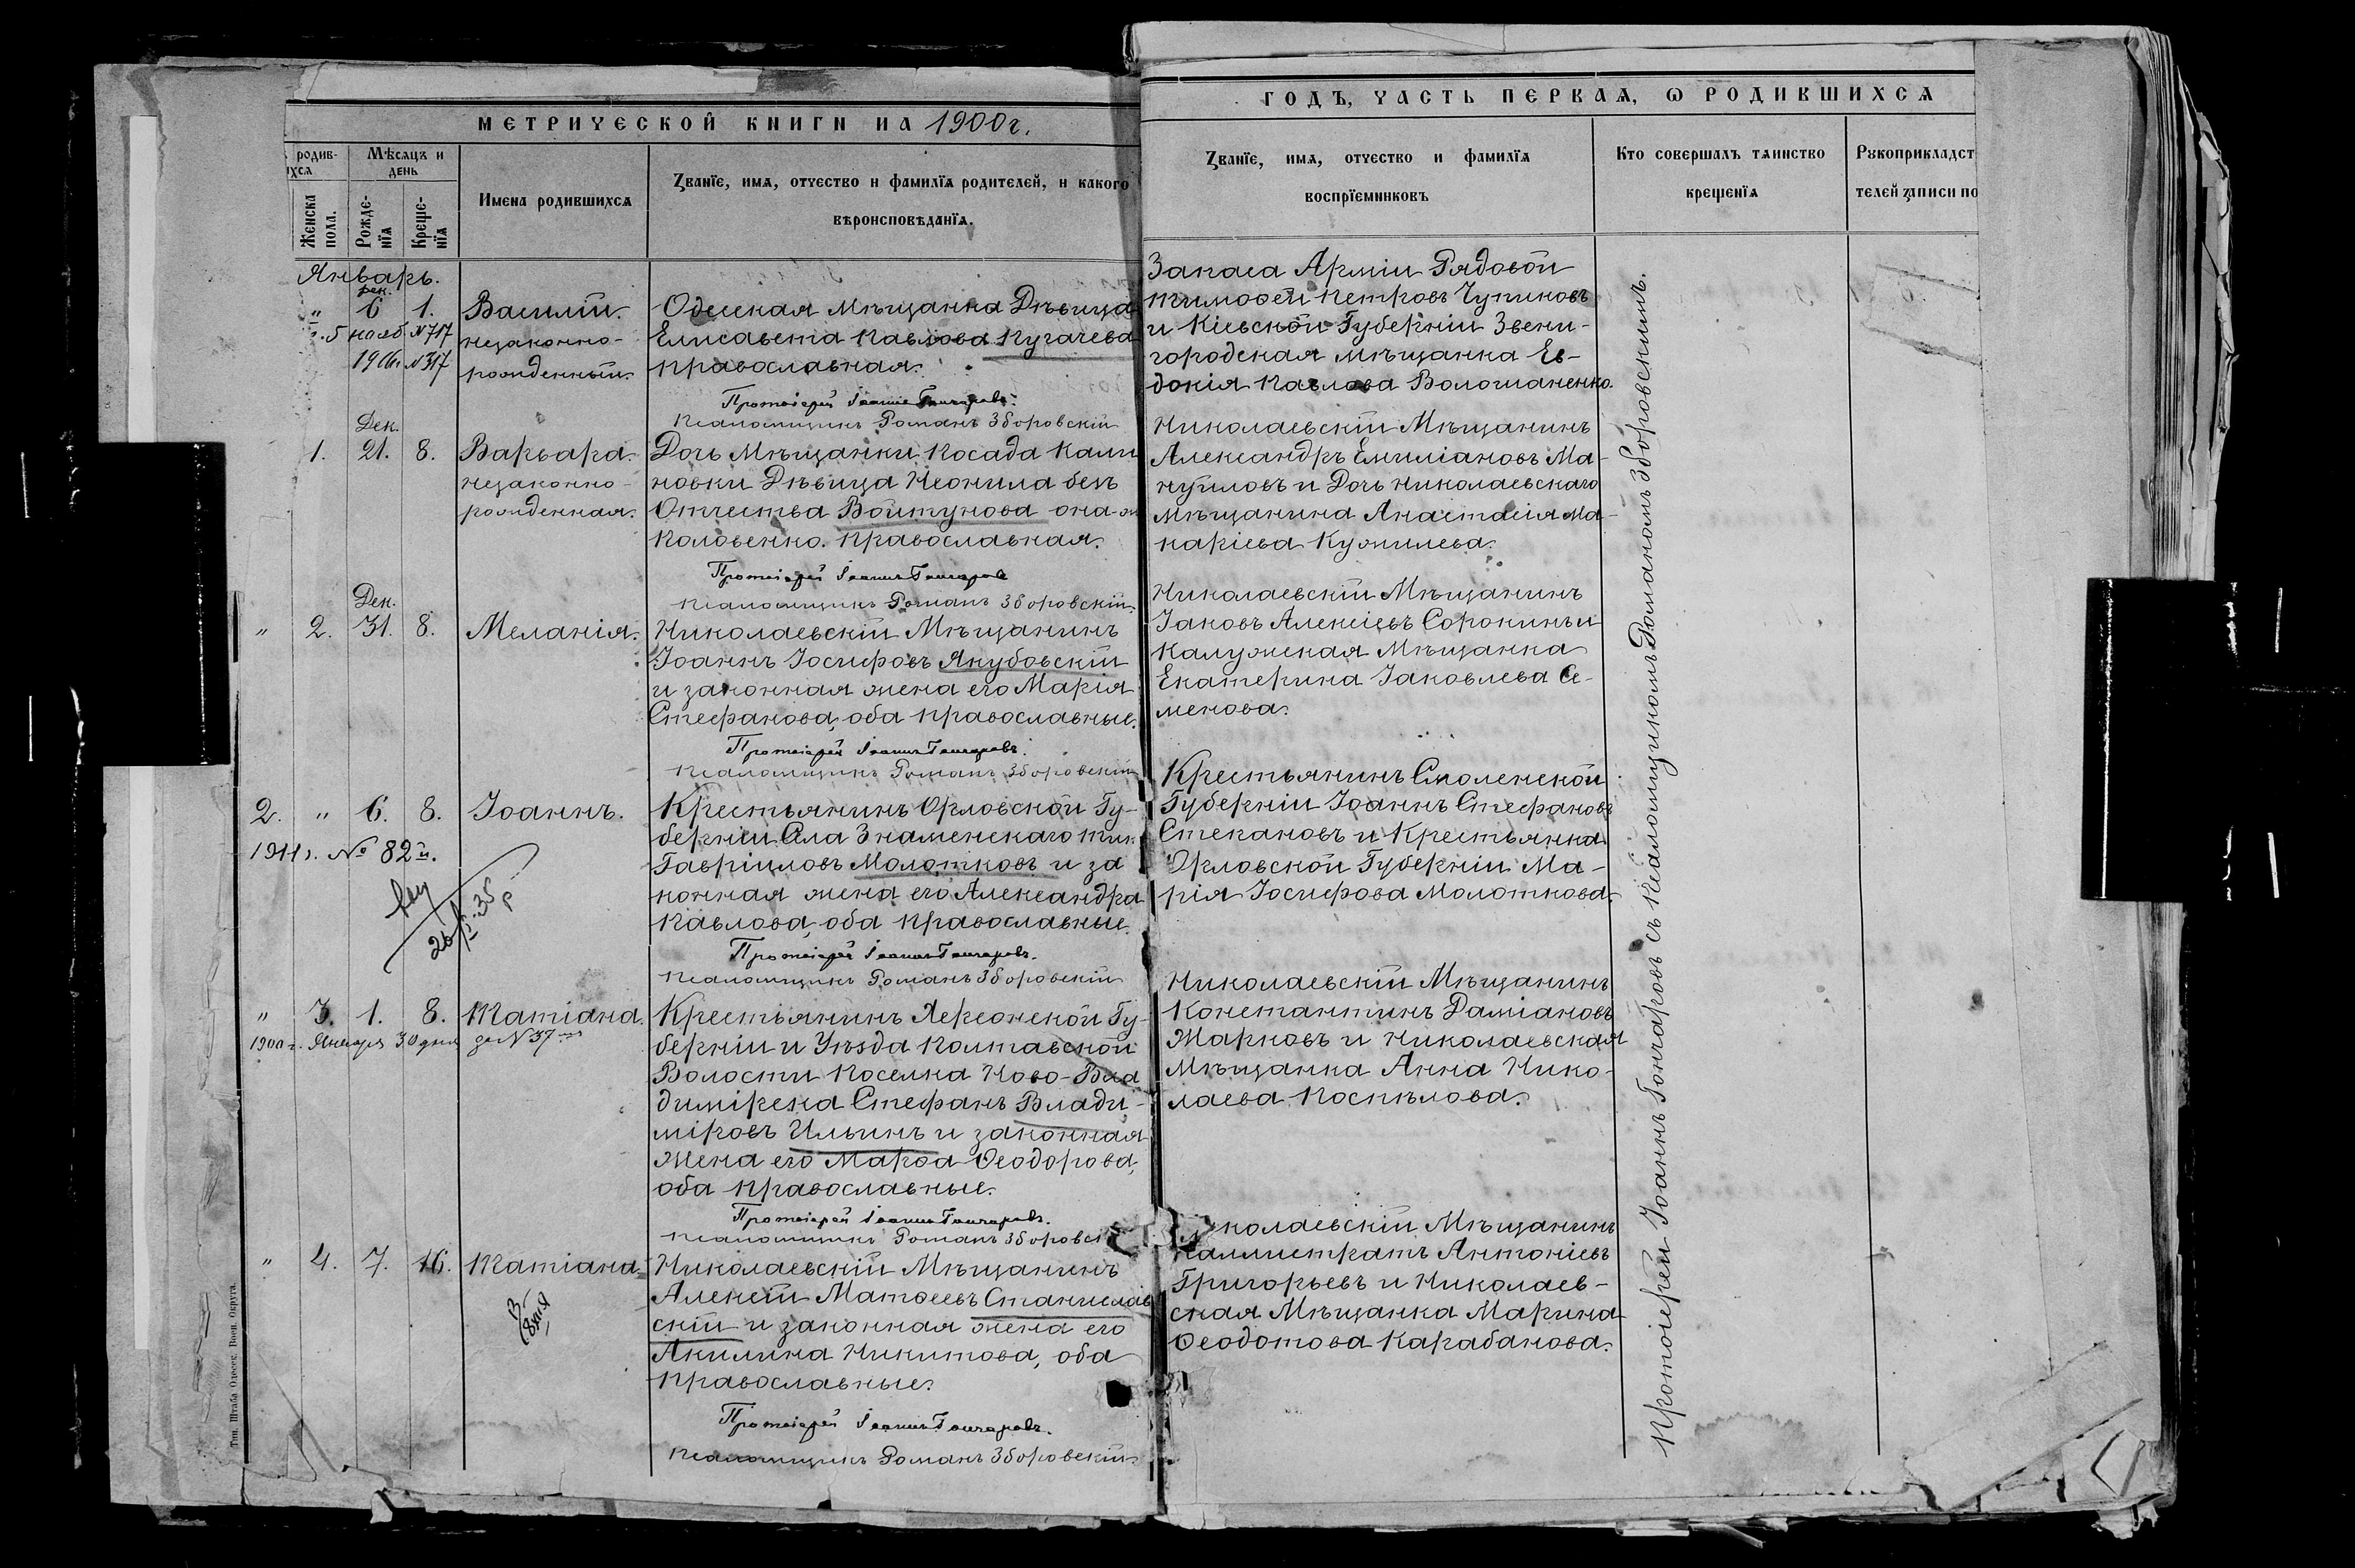 МЕТРИЧЕСКОЙ КНИГИ НА 1900 г.
родив-
ихся
Мѣсяцъ и
день
Женска
пола.
Рожде-
нїя
Креще-
нїя
Имена родившихся
Званїе, имя, отчество и фамилїя родителей, и какого
вѣроисповѣданїя.
Январь.
дек.
" 6 1.
5 нояб. №717
№317
Василій.
незаконно-
рожденный.
Одесская Мѣщанка Дѣвица
Елисавета Павлова Пугачева
православная.
Протоіерей Іоаннъ Гончаровъ.
Псаломщикъ Романъ Зборовскій
Дек.
1. 21. 8.
Варвара
незаконно-
рожденная.
Дочь Мѣщанки Посада Кали
новки Дѣвица Неонила безъ
Отчества Войтунова она-ж
Половенко. православная.
Протоіерей Іоаннъ Гончаровъ
Псаломщикъ Романъ Зборовскій.
Дек.
" 2. 31. 8.
Меланія.
Николаевскій Мѣщанинъ
Іоаннъ Іосифовъ Якубовскій
и законная жена его Марія
Стефанова, оба православные.
Протоіерей Іоаннъ Гончаровъ.
Псаломщикъ Романъ Зборовскій
2. " 6. 8.
1911 г. № 82й.
26/I-35
Іоаннъ.
Крестьянинъ Орловской Гу-
берніи Села Знаменскаго Тим.
Гавріиловъ Молотковъ и за
конная жена его Александра
Павлова, оба православные.
Протоіерей Іоаннъ Гончаровъ.
Псаломщикъ Романъ Зборовскій
" 3. 1. 8.
1900 г. Января 30 дня за № 37
Татіана.
Крестьянинъ Херсонской Гу-
берніи и Уѣзда Полтавской
Волости Поселка Ново-Вла
димірска Стефанъ Влади-
міровъ Ильинъ и законная
жена его Марѳа Ѳеодорова,
оба православные.
Протоіерей Іоаннъ Гончаровъ.
Псаломщикъ Романъ Зборовс
" 4. 7. 16.
Татіана.
Николаевскій Мѣщанинъ
Алексій Матѳеевъ Станислав
скій и законная жена его
Акилина Никитова, оба
православные.
Протоіерей Іоаннъ Гончаровъ.
Псаломщикъ Романъ Зборовскій
Тип. Штаба Одесск. Воен. Округа.
ГОДЪ, ЧАСТЬ ПЕРВАЯ, Ѡ РОДИВШИХСЯ
Званїе, имя, отчество и фамилїя
воспрїемниковъ
Кто совершалъ таинство
крещенїя
Рукоприкладст
телей записи по
Запаса Арміи Рядовой
Тимоѳей Петровъ Чупиковъ
и Кіевской Губерніи Звени-
городская мѣщанка Ев-
докія Павлова Волошаненко.
Николаевскій Мѣщанинъ
Александръ Емиліановъ Ма-
нуйловъ и Дочь Николаевскаго
Мѣщанина Анастасія Ма-
каріева Кужилева.
Николаевскій Мѣщанинъ
Іаковъ Алексіевъ Сорокинъ и
Калужская Мѣщанка
Екатерина Іаковлева Се-
менова.
Крестьянинъ Смоленской
Губерніи Іоаннъ Стефановъ
Степановъ и Крестьянка
Орловской Губерніи Ма-
рія Іосифова Молоткова.
Николаевскій Мѣщанинъ
Константинъ Даміановъ
Жарковъ и Николаевская
Мѣщанка Анна Нико-
лаева Поспѣлова.
николаевскій Мѣщанинъ
Каллистратъ Антоніевъ
Григорьевъ и Николаев-
ская Мѣщанка Марина
Ѳеодотова Карабанова.
Протоіерей Іоаннъ Гончаровъ съ Псаломщикомъ Романомъ Зборовскимъ.